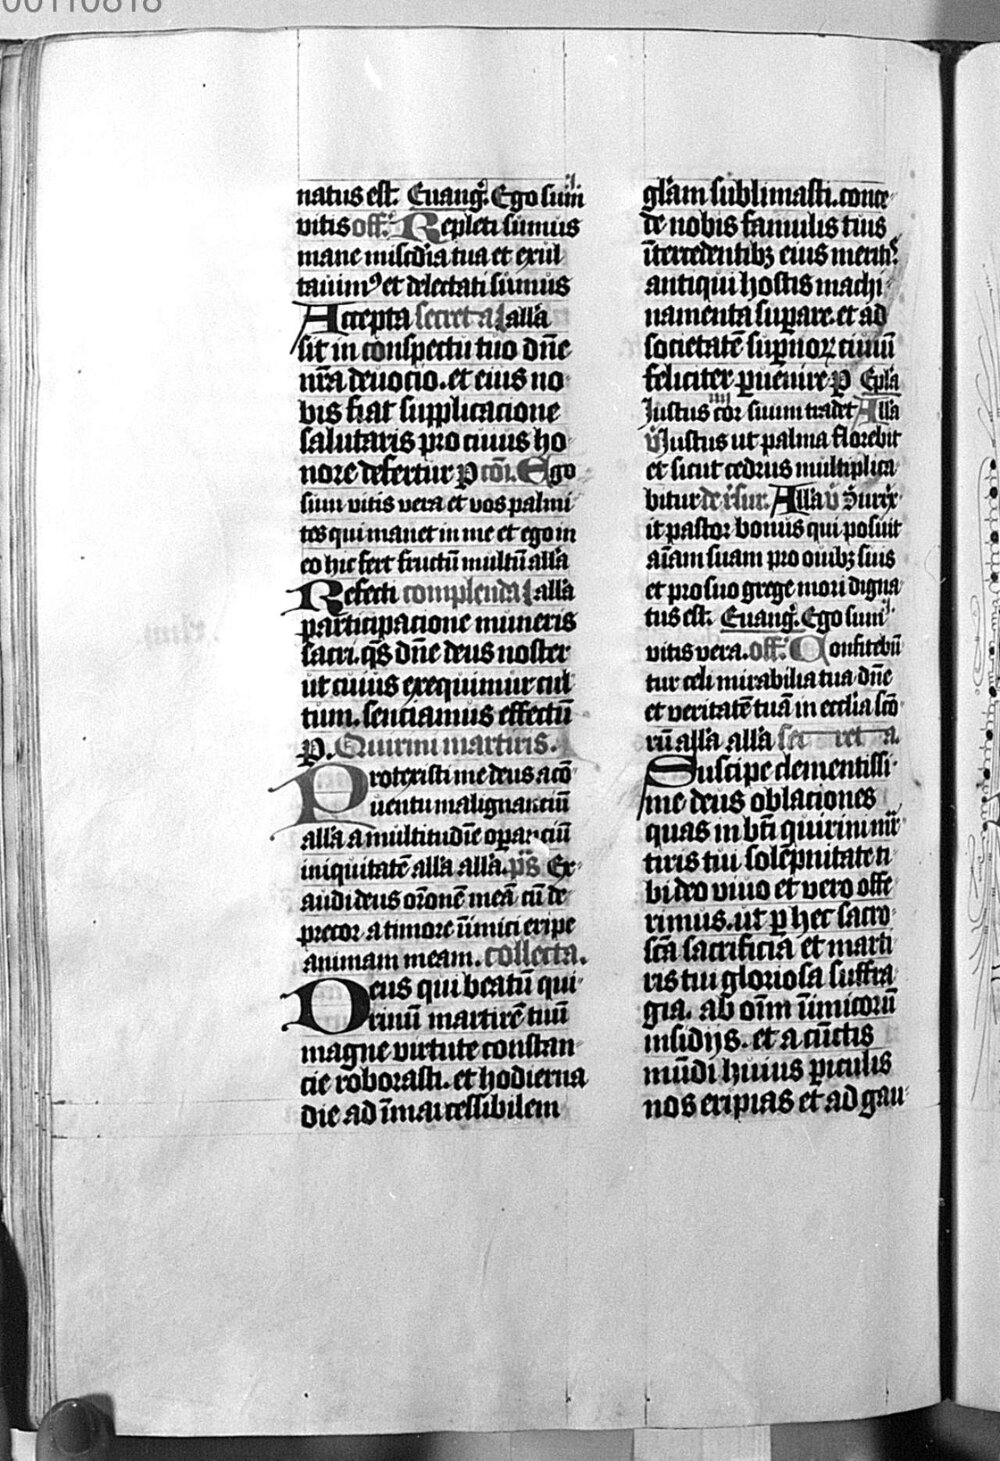 00110818
natus est. Euang. Ego sum
vitis off. Repleti sumus
mane miscd̄ia tua et exul
tauimꝰ et delectati sumus
Accepta secreta alla
sit in conspectu tuo dn̄e
nr̄a deuocio. et eius no
bis fiat supplicacione
salutaris pro cuius ho
nore defertur ꝑ cōi. Ego
sum vitis vera et vos palmi
tes qui manet in me et ego in
eo hic fert fructū multū allā
Refecti complenda allā
participacione muneris
sacri. qs̄ dn̄e deus noster
ut cuius exequimur cul
tum. senciamus effectū
ꝑ. Quirini martiris.
Protexisti me deus a cō
uentu malignanciū
allā a multitudīe operanciū
iniquitatē allā allā. ps̄ Ex
audi deus orōnē meā cū de
precor a timore īimici eripe
animam meam. collecta.
Deus qui beatū qui
rinū martirē tuū
magne virtute constan
cie roborasti. et hodierna
die ad īmarcessibilem
glām sublimasti. conce
de nobis famulis tuis
īntercedentibꝫ eius meritis
antiqui hostis machi
namenta suꝑare. et ad
societatē suꝑnoꝝ ciuiū
feliciter ꝑuenire ꝑ Epla
Justus cor suum tradet Allā
v̄ Justus ut palma florebit
et sicut cedrus multiplica
bitur de r̄sur. Allā v̄ Surrex
it pastor bonus qui posuit
aīam suam pro ouibꝫ suis
et pro suo grege mori digna
tus est. Euang. Ego sum
vitis vera. off. Confitebū
tur celi mirabilia tua dn̄e
et veritatē tuā in ecclīa scō
rū allā allā secreta.
Suscipe clementissi
me deus oblaciones
quas in bt̄i quirini mr̄
tiris tui solēpnitate ti
bi deo viuo et vero offe
rimus. ut ꝑ hec sacro
scā sacrificia et marti
ris tui gloriosa suffra
gia. ab oīm īimicorū
insidijs. et a cūctis
mūdi huius ꝑiculis
nos eripias et ad gau